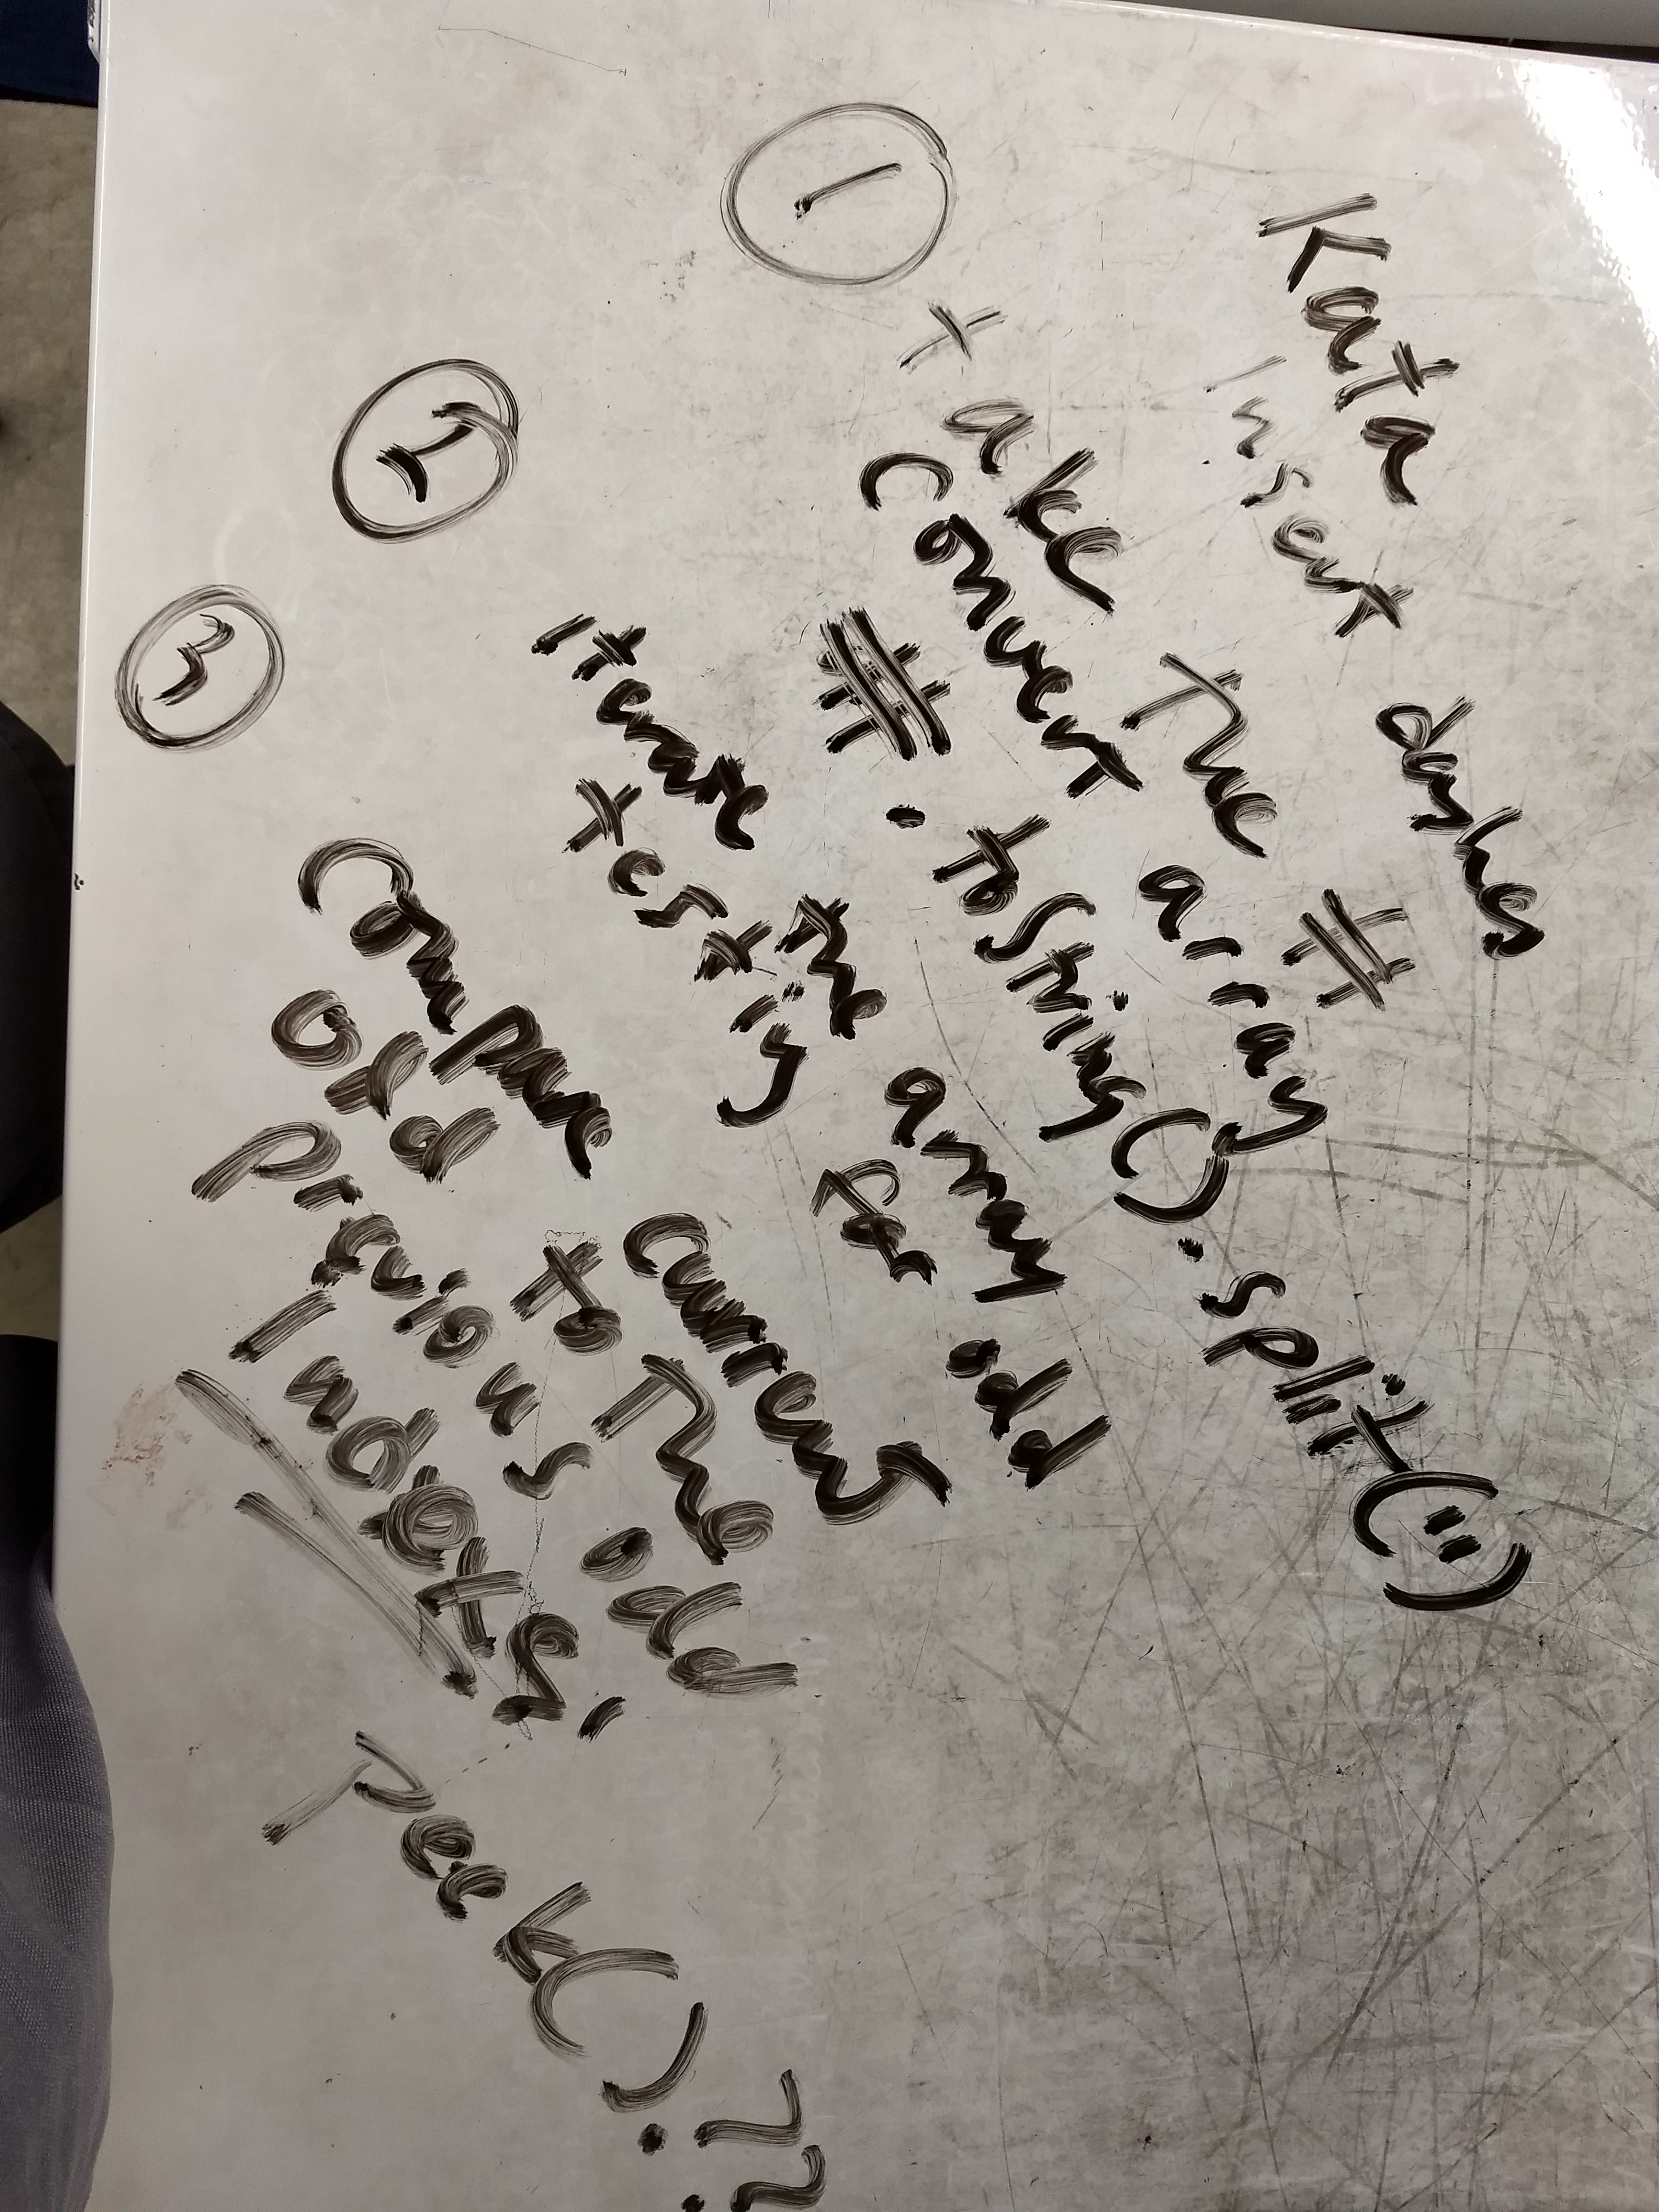 Kata
insert dashes
① take the array #
convert
#.toString().split("")
② iterate the array
testing for odd
③ Compare current
odd to the odd
previous
indexes.
Peek()??